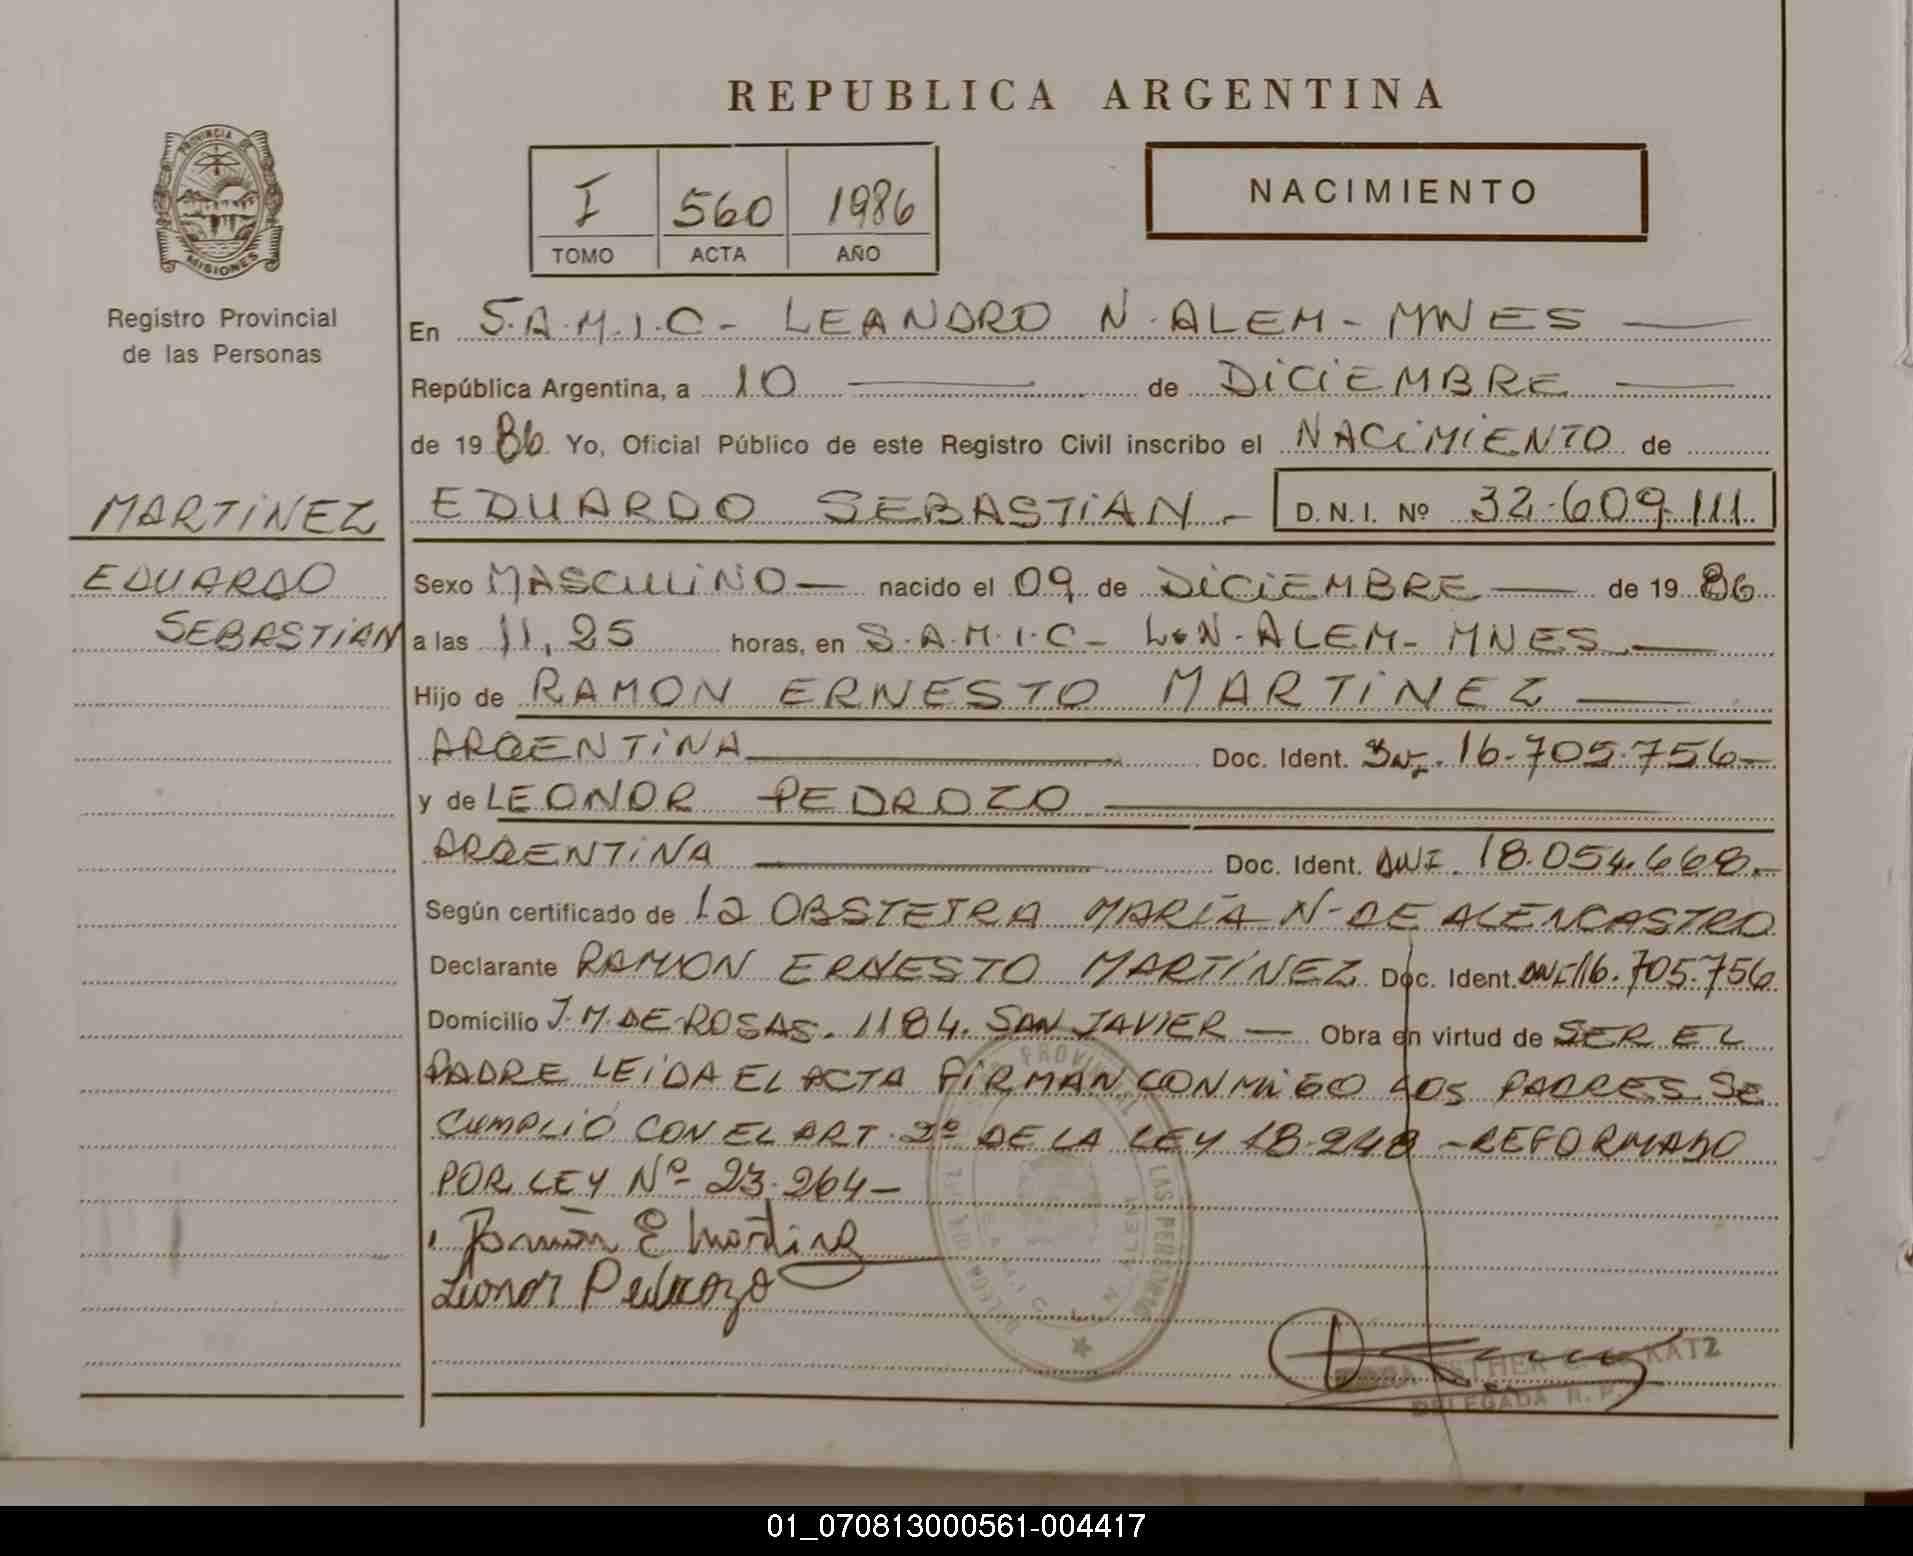 REPUBLICA ARGENTINA
PROVINCIA DE
MISIONES
Registro Provincial
de las Personas
I 560 1986
TOMO ACTA AÑO
NACIMIENTO
En S.A.M.I.C- LEANDRO N. ALEM - MNES
República Argentina, a 10 de DICIEMBRE
de 1986 Yo, Oficial Público de este Registro Civil inscribo el NACIMIENTO de
MARTINEZ
EDUARDO SEBASTIAN - D.N.I. Nº 32.609.111
EDUARDO
SEBASTIAN
Sexo MASCULINO nacido el 09 de DICIEMBRE de 1986
a las 11,25 horas, en S.A.M.I.C- L.N. ALEM- MNES
Hijo de RAMON ERNESTO MARTINEZ
ARGENTINA Doc. Ident. DNI. 16.705.756-
y de LEONOR PEDROZO
ARGENTINA Doc. Ident. DNI. 18.054.668.-
Según certificado de La OBSTETRA MARÍA N. DE ALENCASTRO
Declarante RAMON ERNESTO MARTÍNEZ Doc. Ident. DNI 16.705.756
Domicilio J.M. DE ROSAS. 1184. SAN JAVIER - Obra en virtud de SER EL
PADRE LEIDA EL ACTA FIRMAN CONMIGO LOS PADRES SE
CUMPLIÓ CON EL ART. 2º DE LA LEY 18.248 - REFORMADO
POR LEY Nº 23.264-
Ramón E Martinez
Leonor Pedrozo
LAS PERSONAS
ESTHER KATZ
DELEGADA R. P.
01_070813000561-004417